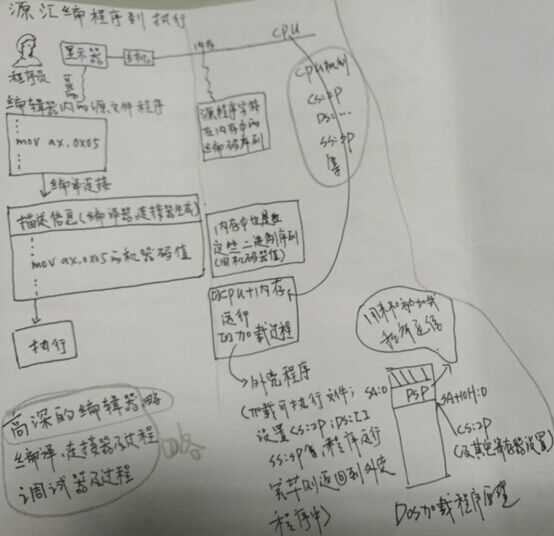 源汇编程序到执行
程序员
显示器
主机
内存
CPU
编辑器内的源文件程序
⋮
mov ax,0x05
⋮
源程序字符
在内存中的
编码序列
CPU机制
CS:IP
DS:…
SS:SP
等
编译连接
描述信息(编译器,连接器生成)
⋮
mov ax,0x05的机器码值
⋮
内存中也是数
这些二进制序列
(用机码器值)
CPU+内存
运行
加载过程
执行
外壳程序
(加载可执行文件;
设置CS:IP;DS:[]
SS:SP等,程序运行
完毕则返回到外壳
程序中)
高深的编辑器 略
编译,连接器及过程
调试器及过程
SA:0
PSP
SA+10H:0
CS:IP
(及其它寄存器设置)
DOS加载程序原理